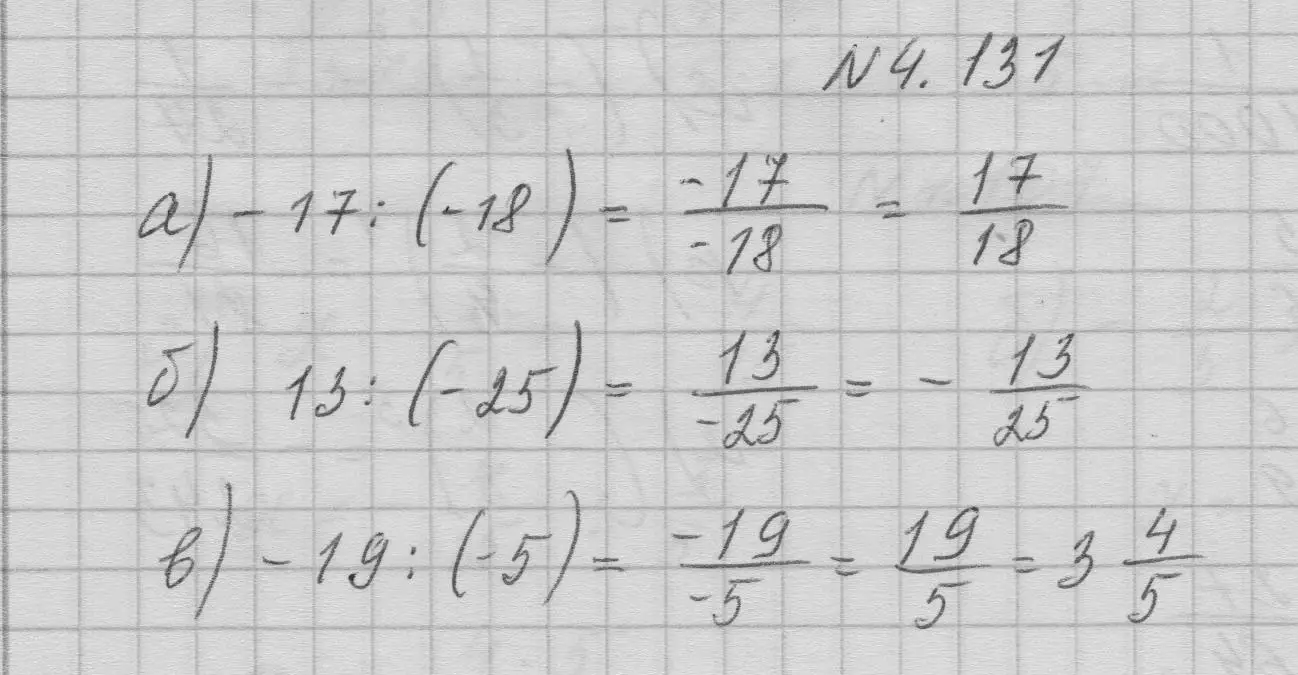 N 4. 131
а) - 17 : (-18) = -17/-18 = 17/18
б) 13 : (-25) = 13/-25 = - 13/25
в) - 19 : (-5) = -19/-5 = 19/5 = 3 4/5